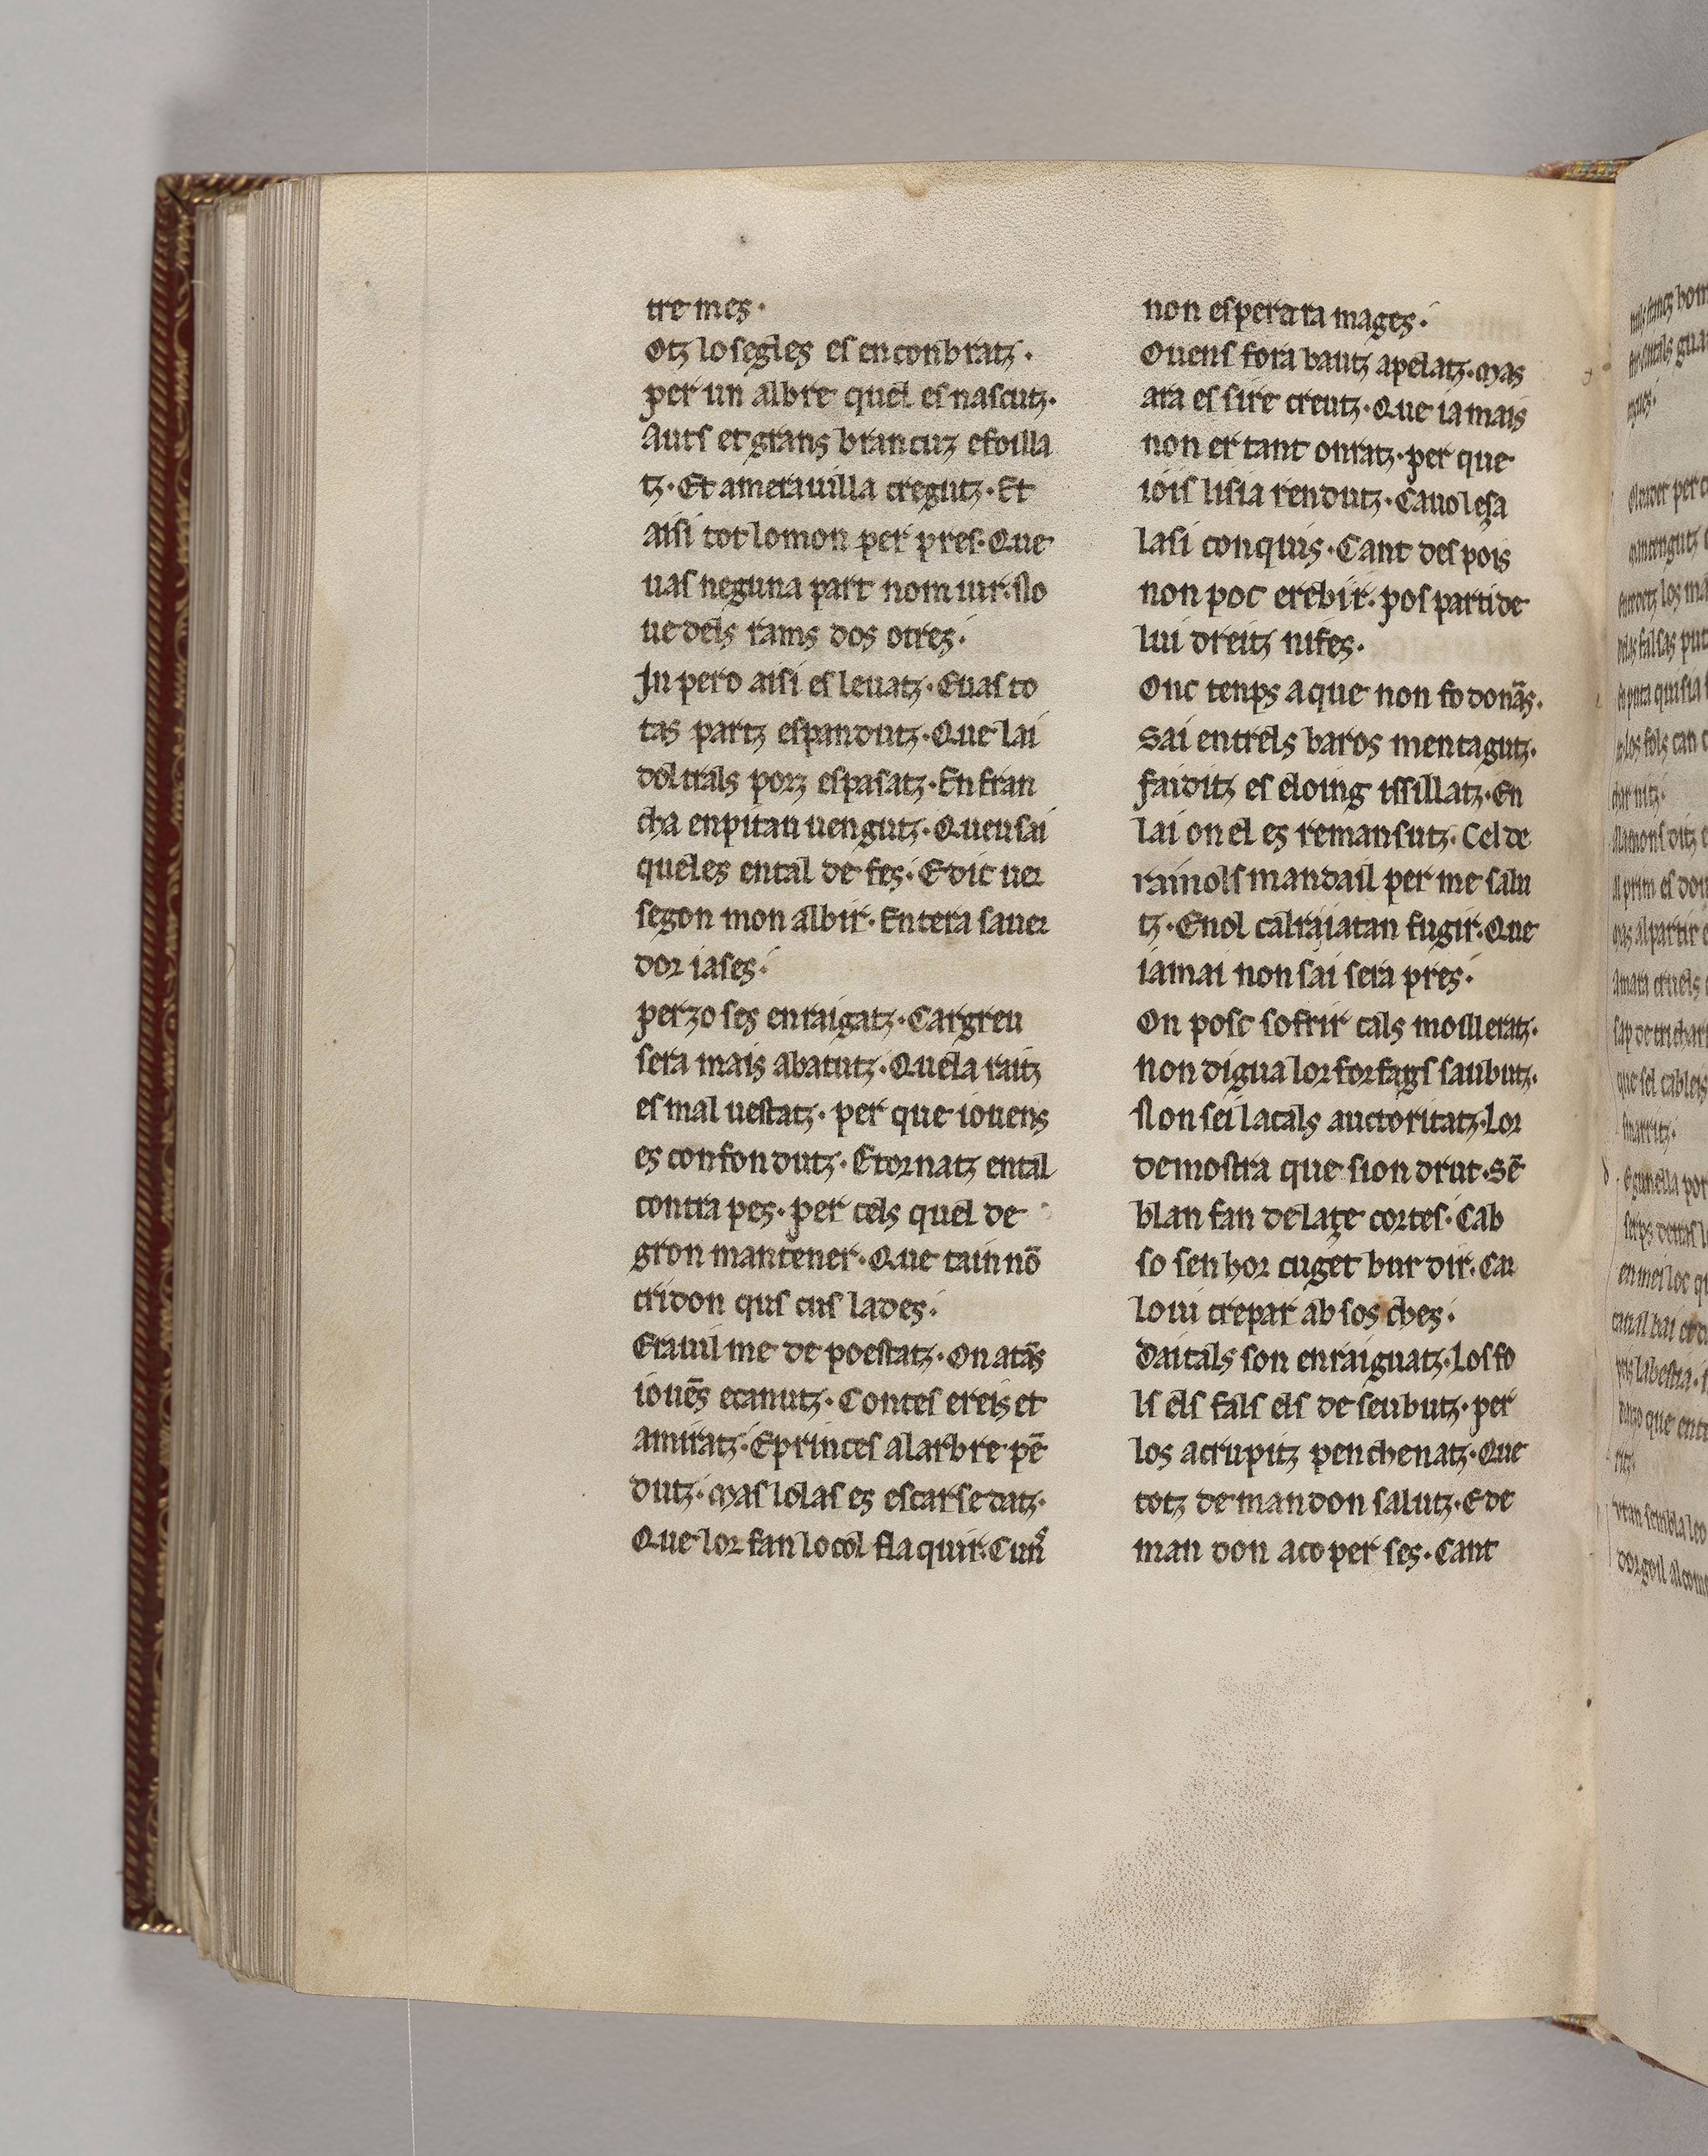 tre mes·
Otz lo segles es enconbratz·
per un albre quel es nascutz·
Auts et grans brancuz efoilla
tz· Et amerauilla cregutz· Et
aisi tot lomon per pres· Que
uas neguna part nom uir· No
ue dels rams dos otres·
In pero aisi es leuatz· Euas to
tas partz espandutz· Que lai
doltrals porz espasatz· En fran
cha enpitau uengutz· Queu sai
queles ental de fes· E dic uer
segon mon albir· Entera sauer
dor iases·
perzo ses enraigatz· Cargreu
sera mais abatutz· Quela raitz
es mal uestatz· per que iouens
es confondutz· Etornatz ental
contra pes· per cels quel de
gron mantener· Que tain nō
cridon qus cus lades·
Erauil me de poestatz· On atās
iouēs ecanutz· Contes ereis et
amiratz· Eprinces alarbre pē
dutz· Mas lolas es escarsedatz·
Que lor fan lo col flaquir· Cun
non esperara mages·
Ouens fora bautz apelatz· Mas
ara es sire creutz· Que iamais
non er tant onratz· per que
iois lisia rendutz· Cauolesa
lasi conquis· Cant des pois
non poc erebir· pos parti de
lui dreitz nifes·
Onc tenps aque non fo donās·
Sai entrels baros mentagutz·
faiditz es eloing issillatz· En
lai on el es remansutz· Cel de
rainols mandail per me salu
tz· Enol calraiatan fugir· Que
iamai non sai sera pres·
On posc sofrir cals moilleratz·
non digua lor forfags saubutz·
Non sei lacals auctoritatz· Lor
demostra que sion drut· Sē
blan fan delaze cortes· Cab
so senhor cuget burdir· Car
loiu crepar ab sos ches·
Daitals son enraiguatz· Los fo
ls els fals els deseubutz· per
los acrupitz penchenatz· Que
totz demandon salutz· E de
man don aco per ses· Cant